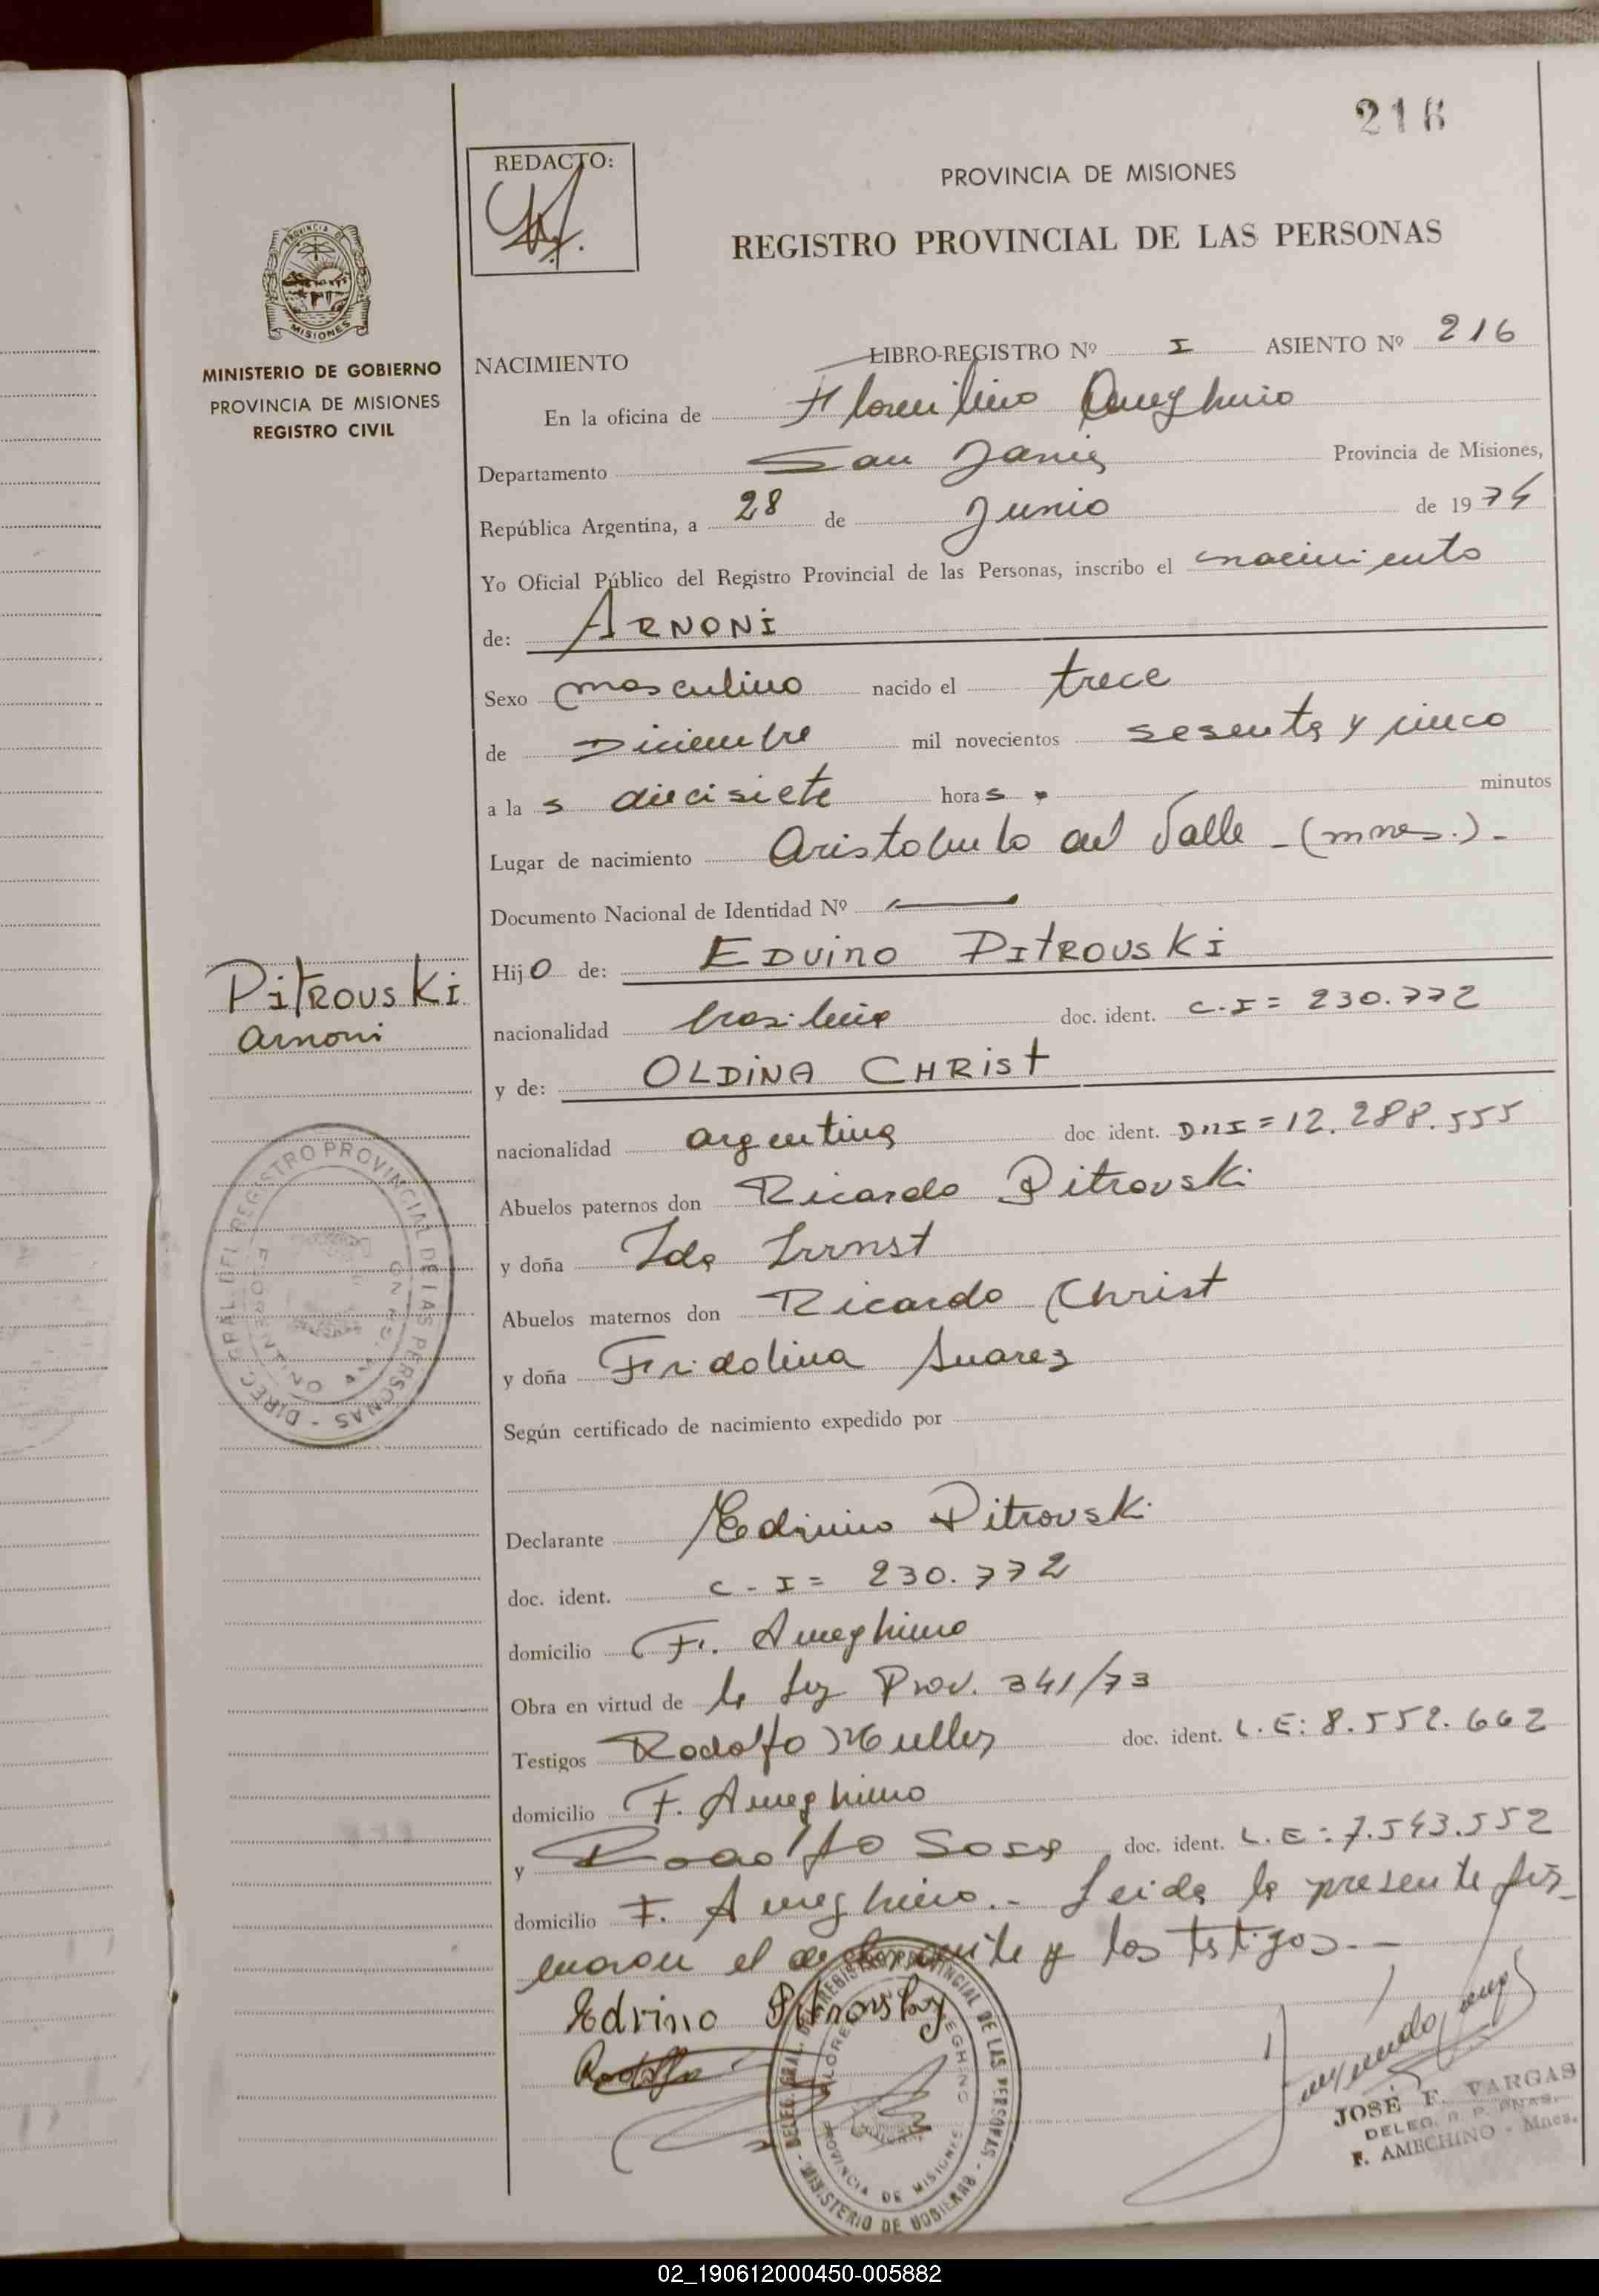 216
REDACTO:
PROVINCIA DE MISIONES
REGISTRO PROVINCIAL DE LAS PERSONAS
PROVINCIA DE
MISIONES
MINISTERIO DE GOBIERNO
PROVINCIA DE MISIONES
REGISTRO CIVIL
NACIMIENTO LIBRO-REGISTRO Nº I ASIENTO Nº 216
En la oficina de Florentino Ameghino
Departamento San Javier Provincia de Misiones,
República Argentina, a 28 de Junio de 1974
Yo Oficial Público del Registro Provincial de las Personas, inscribo el nacimiento
de: ARNONI
Sexo masculino nacido el trece
de Diciembre mil novecientos sesenta y cinco
a la s diecisiete horas . minutos
Lugar de nacimiento Aristobulo del Valle - (mnes.) -
Documento Nacional de Identidad Nº —
Hijo de: EDUINO PITROUSKI
Pitrouski
Arnoni
nacionalidad brasileña doc. ident. C.I = 230.772
y de: OLDINA CHRIST
nacionalidad argentina doc ident. DNI = 12.288.555
Abuelos paternos don Ricardo Pitrouski
y doña Ida
Abuelos maternos don Ricardo Christ
y doña Fridolina Suarez
Según certificado de nacimiento expedido por
Declarante Pitrouski
doc. ident. C - I = 230.772
domicilio F. Ameghino
Obra en virtud de la Ley Prov. 341/73
Testigos Rodolfo Muller doc. ident. L.E: 8.552.662
domicilio F. Ameghino
y Rodolfo Sosa doc. ident. L.E: 7.543.552
domicilio F. Ameghino.- Leida la presente fir-
maron el declarante y los testigos.-
Edvino
REGISTRO PROVINCIAL DE LAS PERSONAS
DELEG. GRAL. DEL REGISTRO PROVINCIAL DE LAS PERSONAS - MINISTERIO DE GOBIERNO -
PROVINCIA DE MISIONES
JOSÉ F. VARGAS
DELEG. R. P. PNAS.
F. AMEGHINO - Mnes.
02_190612000450-005882